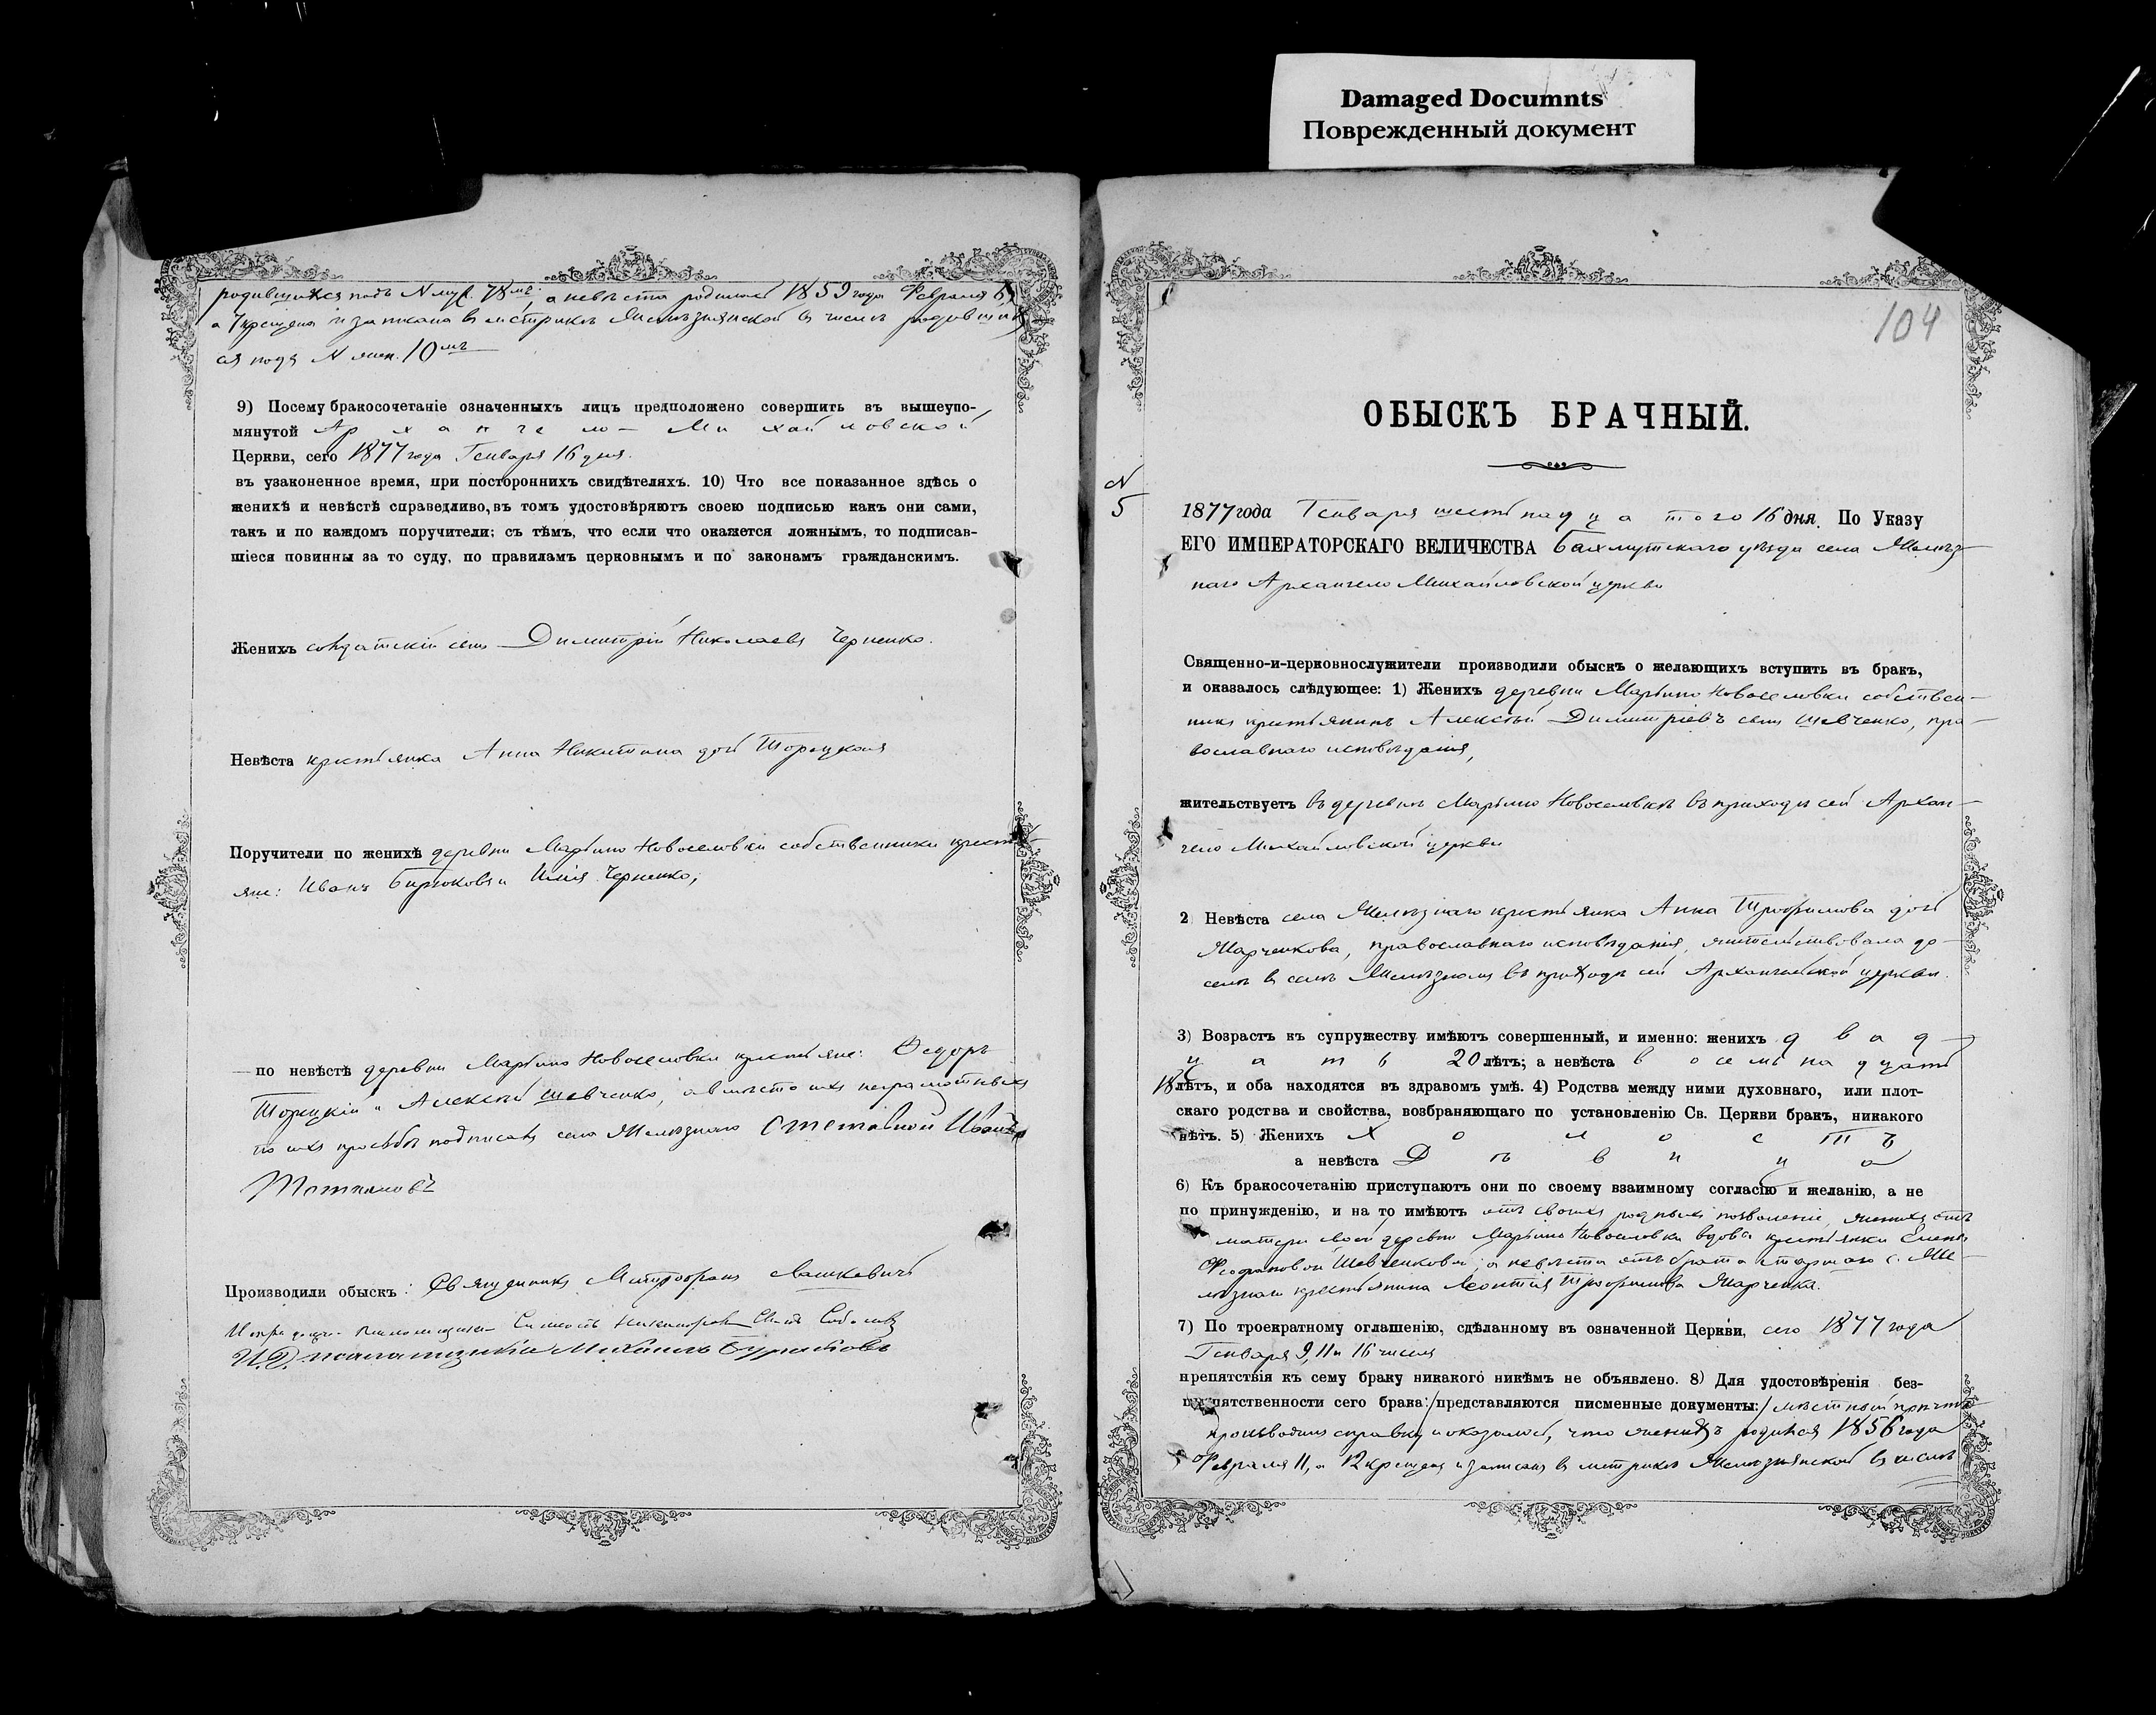 Damaged Documnts
Поврежденный документ
родившихся подъ N муж. 78мъ, а невѣста родилась 1859 года Февраля 6,
а 7 крещена и записана въ метрикѣ Желѣзнянской въ числѣ родивших
ся подъ N жен. 10мъ
9) Посему бракосочетаніе означенныхъ лицъ предположено совершить въ вышеупо-
мянутой Архангело-Михайловской
Церкви, сего 1877 года Генваря 16 дня.
въ узаконенное время, при постороннихъ свидѣтеляхъ. 10) Что все показанное здѣсь о
женихѣ и невѣстѣ справедливо, въ томъ удостовѣряютъ своею подписью какъ они сами,
такъ и по каждомъ поручители; съ тѣмъ, что если что окажется ложнымъ, то подписав-
шіеся повинны за то суду, по правиламъ церковнымъ и по законамъ гражданскимъ.
Женихъ солдатскій сынъ Димитрій Николаевъ Черненко.
Невѣста крестьянка Анна Никитина дочь Торецкая
Поручители по женихѣ деревни Марьино Новоселовки собственники кресть
яне: Иванъ Бирюковъ и Илія Черненко,
по невѣстѣ деревни Марьино Новоселовки крестьяне: Ѳедоръ
Торецкій и Алексѣй Шевченко, а вмѣсто ихъ неграмотныхъ
по ихъ просьбѣ подписалъ села Желѣзнаго Иванъ
Производили обыскъ: Священникъ Митрофанъ
И. Д. псаломщика Михаилъ
104
ОБЫСКЪ БРАЧНЫЙ.
N
5
1877 года Генваря шестнадцатого 16 дня. По Указу
ЕГО ИМПЕРАТОРСКАГО ВЕЛИЧЕСТВА Бахмутскаго уѣзда села Желѣз-
наго Архангело Михайловской церкви
Священно-и-церковнослужители производили обыскъ о желающихъ вступить въ бракъ,
и оказалось слѣдующее: 1) Женихъ деревни Марьино Новоселовки собствен-
никъ крестьянинъ Алексѣй Димитріевъ сынъ Шевченко, пра-
вославнаго исповѣданія,
жительствуетъ въ деревнѣ Марьино Новоселовкѣ въ приходѣ сей Архан-
гело Михайловской церкви
2 Невѣста села Желѣзнаго крестьянка Анна Трофимова дочь
Марченкова, православнаго исповѣданія, жительствовала до-
селѣ въ селѣ Желѣзномъ въ приходѣ сей Архангельской церкви.
3) Возрастъ къ супружеству имѣютъ совершенный, и именно: женихъ двад-
цать 20 лѣтъ; а невѣста восемьнадцать
18 лѣтъ, и оба находятся въ здравомъ умѣ. 4) Родства между ними духовнаго, или плот-
скаго родства и свойства, возбраняющаго по установленію Св. Церкви бракъ, никакого
нѣтъ. 5) Женихъ Холостъ
а невѣста Дѣвица
6) Къ бракосочетанію приступаютъ они по своему взаимному согласію и желанію, а не
по принужденію, и на то имѣютъ отъ своихъ родныхъ позволеніе, женихъ отъ
матери своей деревни Марьино Новоселовки вдовы крестьянки Елены
Феофановой Шевченковой, а невѣста отъ брата старшаго с. Же-
лѣзнаго крестьянина Леонтія Трофимова Марченка.
7) По троекратному оглашенію, сдѣланному въ означенной Церкви, сего 1877 года
Генваря 9, 11 и 16 числа
препятствія къ сему браку никакого никѣмъ не объявлено. 8) Для удостовѣренія без-
препятственности сего брака: представляются писменные документы: мѣстный причтъ
производилъ справку и оказалось, что женихъ родился 1856 года
Февраля 11, а 12 крещенъ и записанъ въ метрикѣ Желѣзнянской въ числѣ